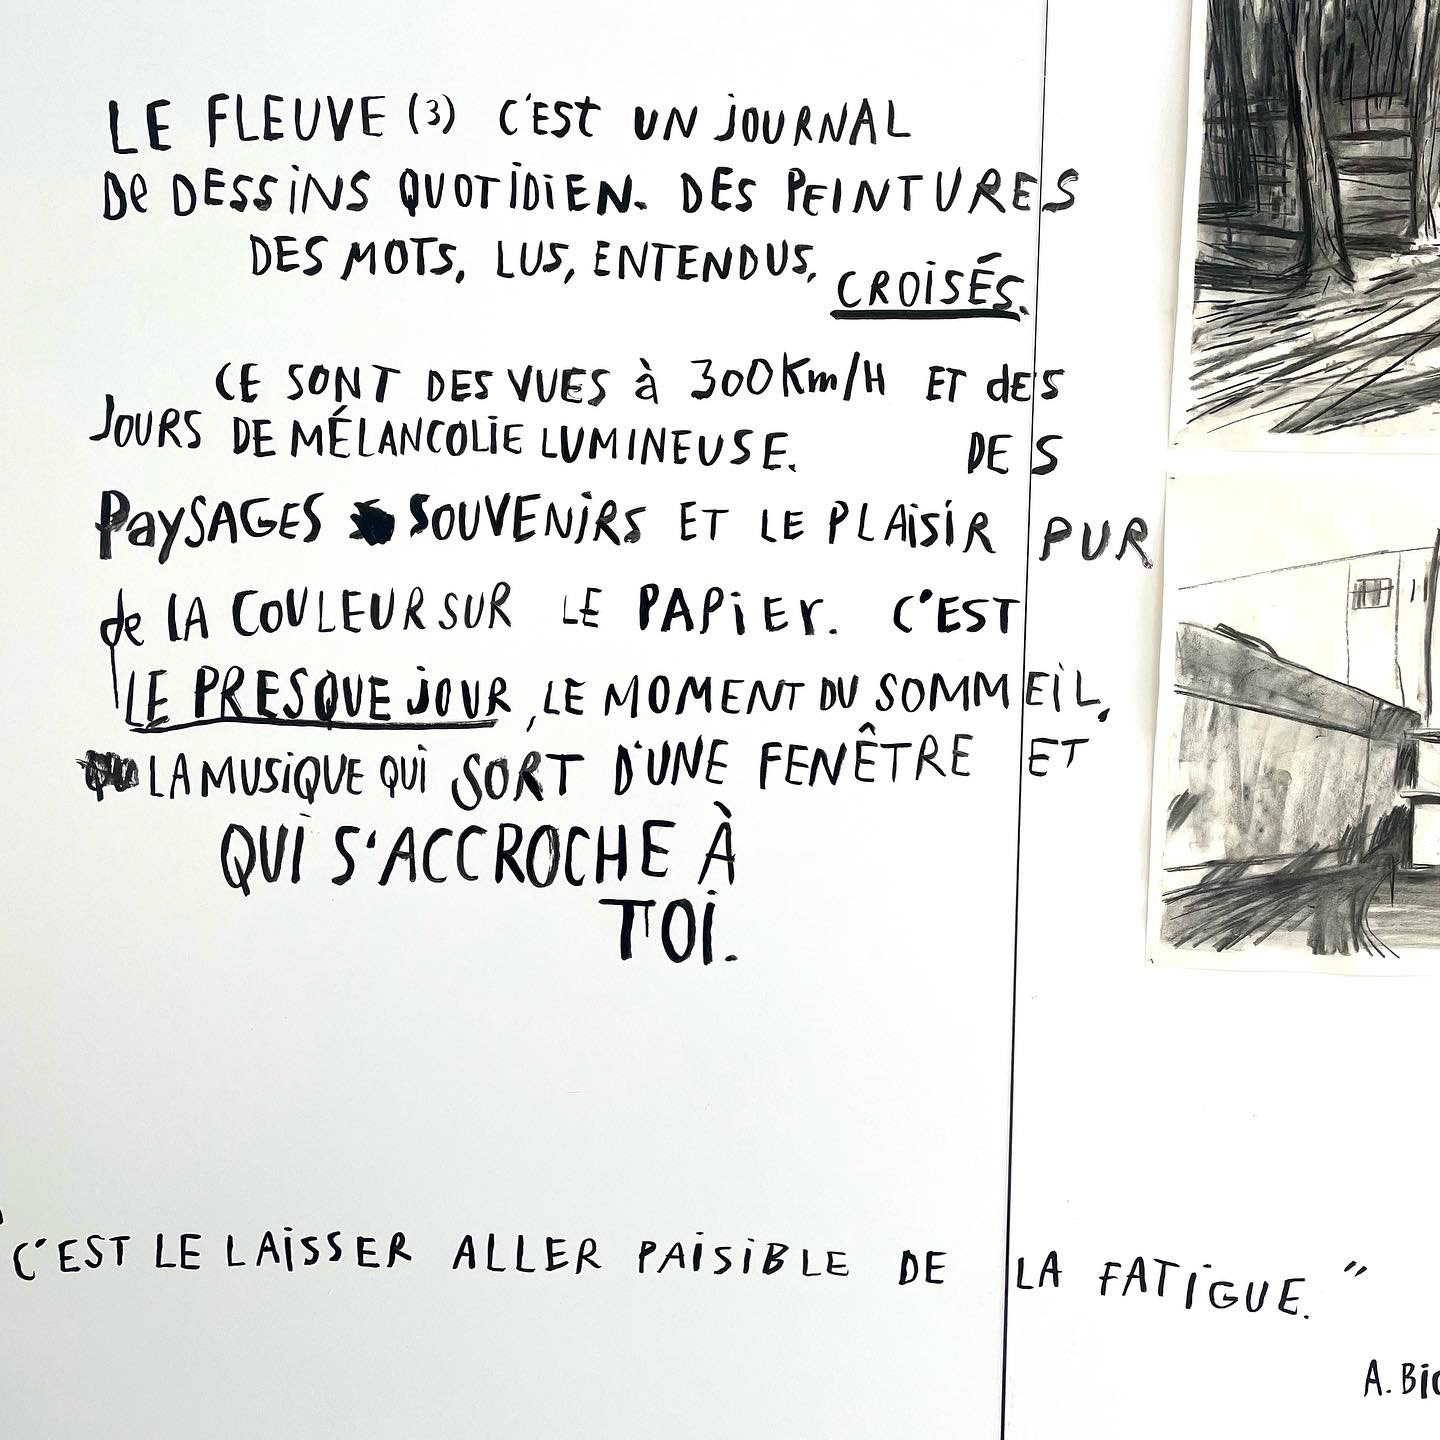 LE FLEUVE (3) C'EST UN JOURNAL
De DESSiNS QUOTIDIEN. DES PEINTURES
DES MOTS, LUS, ENTENDUS, CROISÉS.
CE SONT DES VUES à 300 Km/H ET dES
JOURS DE MÉLANCOLIE LUMINEUSE. DES
PaySAGES SOUVENiRS ET LE PLAiSiR PUR
de LA COULEUR SUR LE PAPiER. C'EST
LE PRESQUE JOUR, LE MOMENT DU SOMMEiL,
LA MUSiQUE QUi SORT D'UNE FENÊTRE ET
QUi S'ACCROCHE À
TOi.
C'EST LE LAiSSER ALLER PAiSiBLE DE LA FATiGUE."
A.